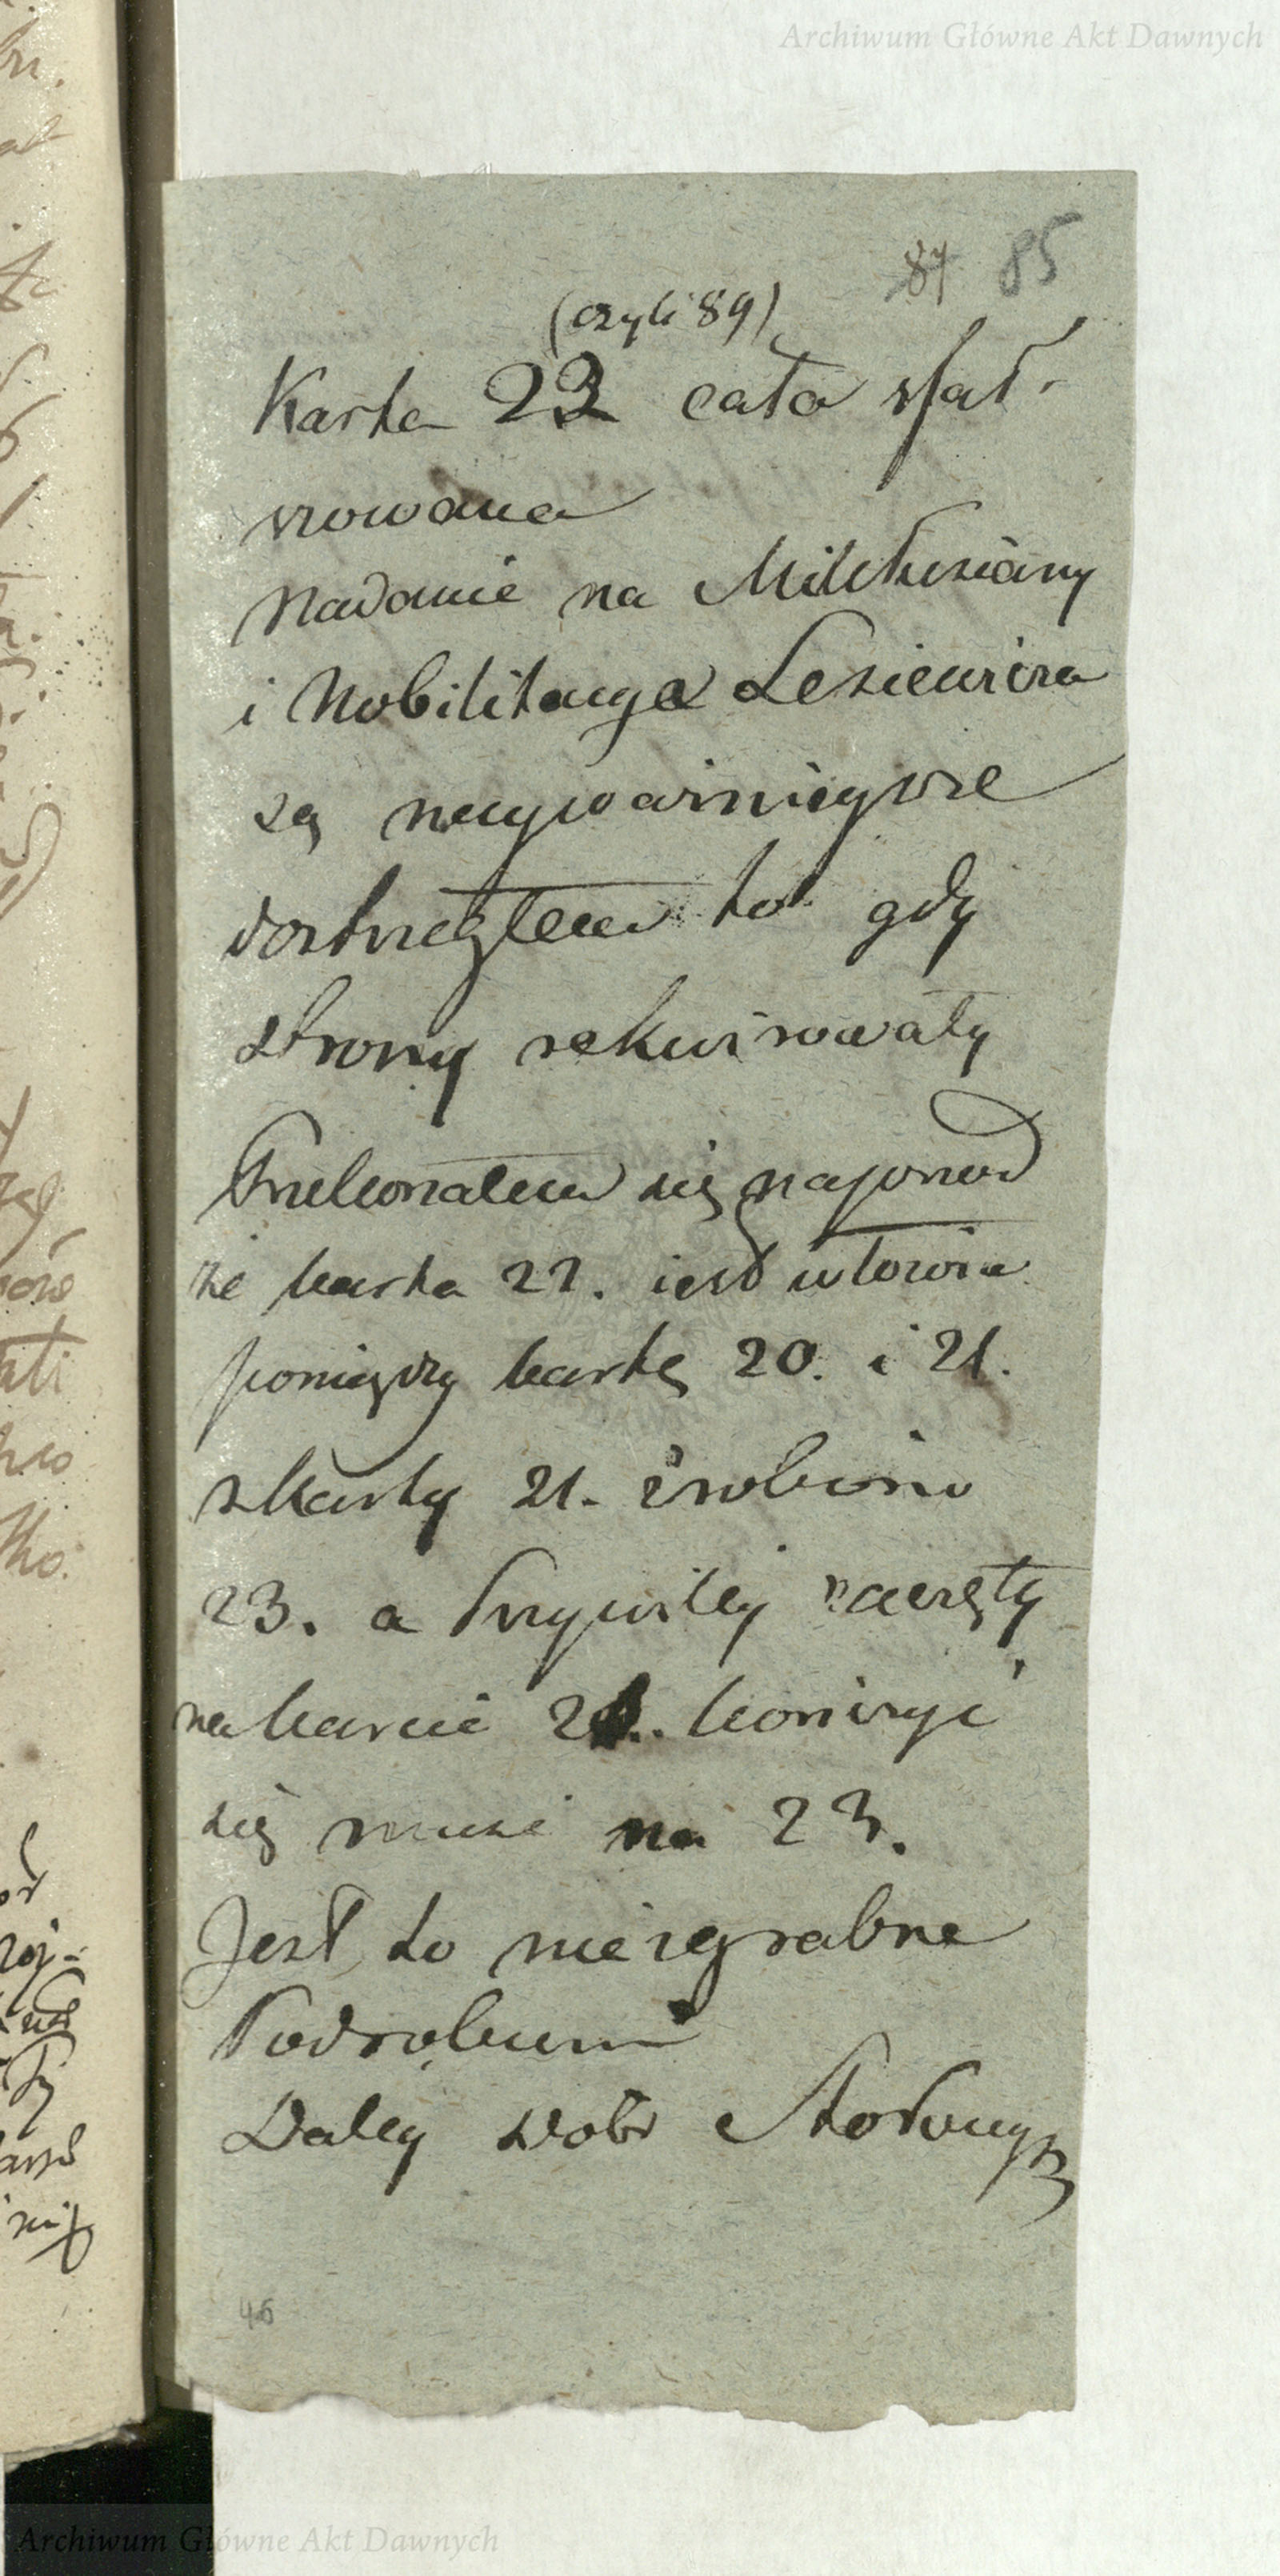 Archiwum Główne Akt Dawnych
87 85
(czyli 89)
Karta 23 cała sfał-
szowana
Nadanie na
i Nobilitacya Lesiewicza
są nayważnieysze
dostrzegłem to gdy
strony rekwirowały
Przekonałem się naprzod
że karta 22. iest
pomiędzy kartę 20. i 21.
z karty 21. zrobiono
23. a Przywiley zaczęty
na karcie 21. kończyć
się musi na 23.
Jest to niezgrabne
Podrobienie
Daley dobr Stołowych
46
Archiwum Główne Akt Dawnych